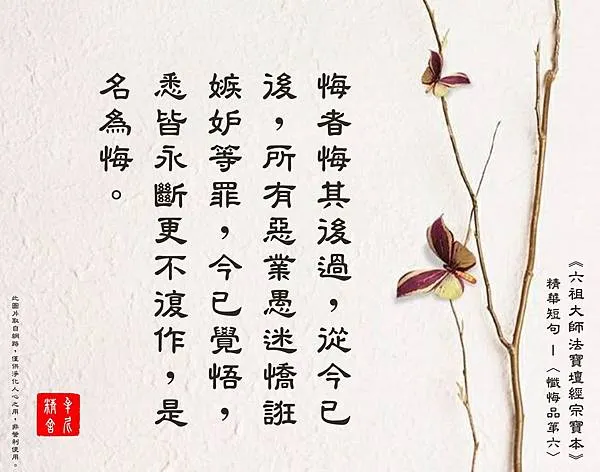 《六祖大師法寶壇經宗寶本》
精華短句 —〈懺悔品第六〉
悔者悔其後過，從今已
後，所有惡業愚迷憍誑
嫉妒等罪，今已覺悟，
悉皆永斷更不復作，是
名為悔。
此圖片取自網路，僅供淨化人心之用，非營利使用。